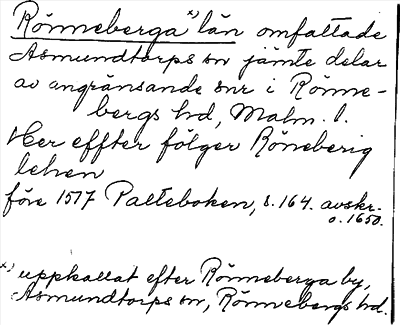 Rönneberga x) län omfattade
Asmundtorps sn jämte delar
av angränsande snr i Rönne-
bergs hd, Malm. l.
Her effter fölger Röneberig
lehen
före 1577 Palteboken, s. 164. avskr.
o. 1650.
x) uppkallat efter Rönneberga by,
Asmundtorps sn, Rönnebergs hd.